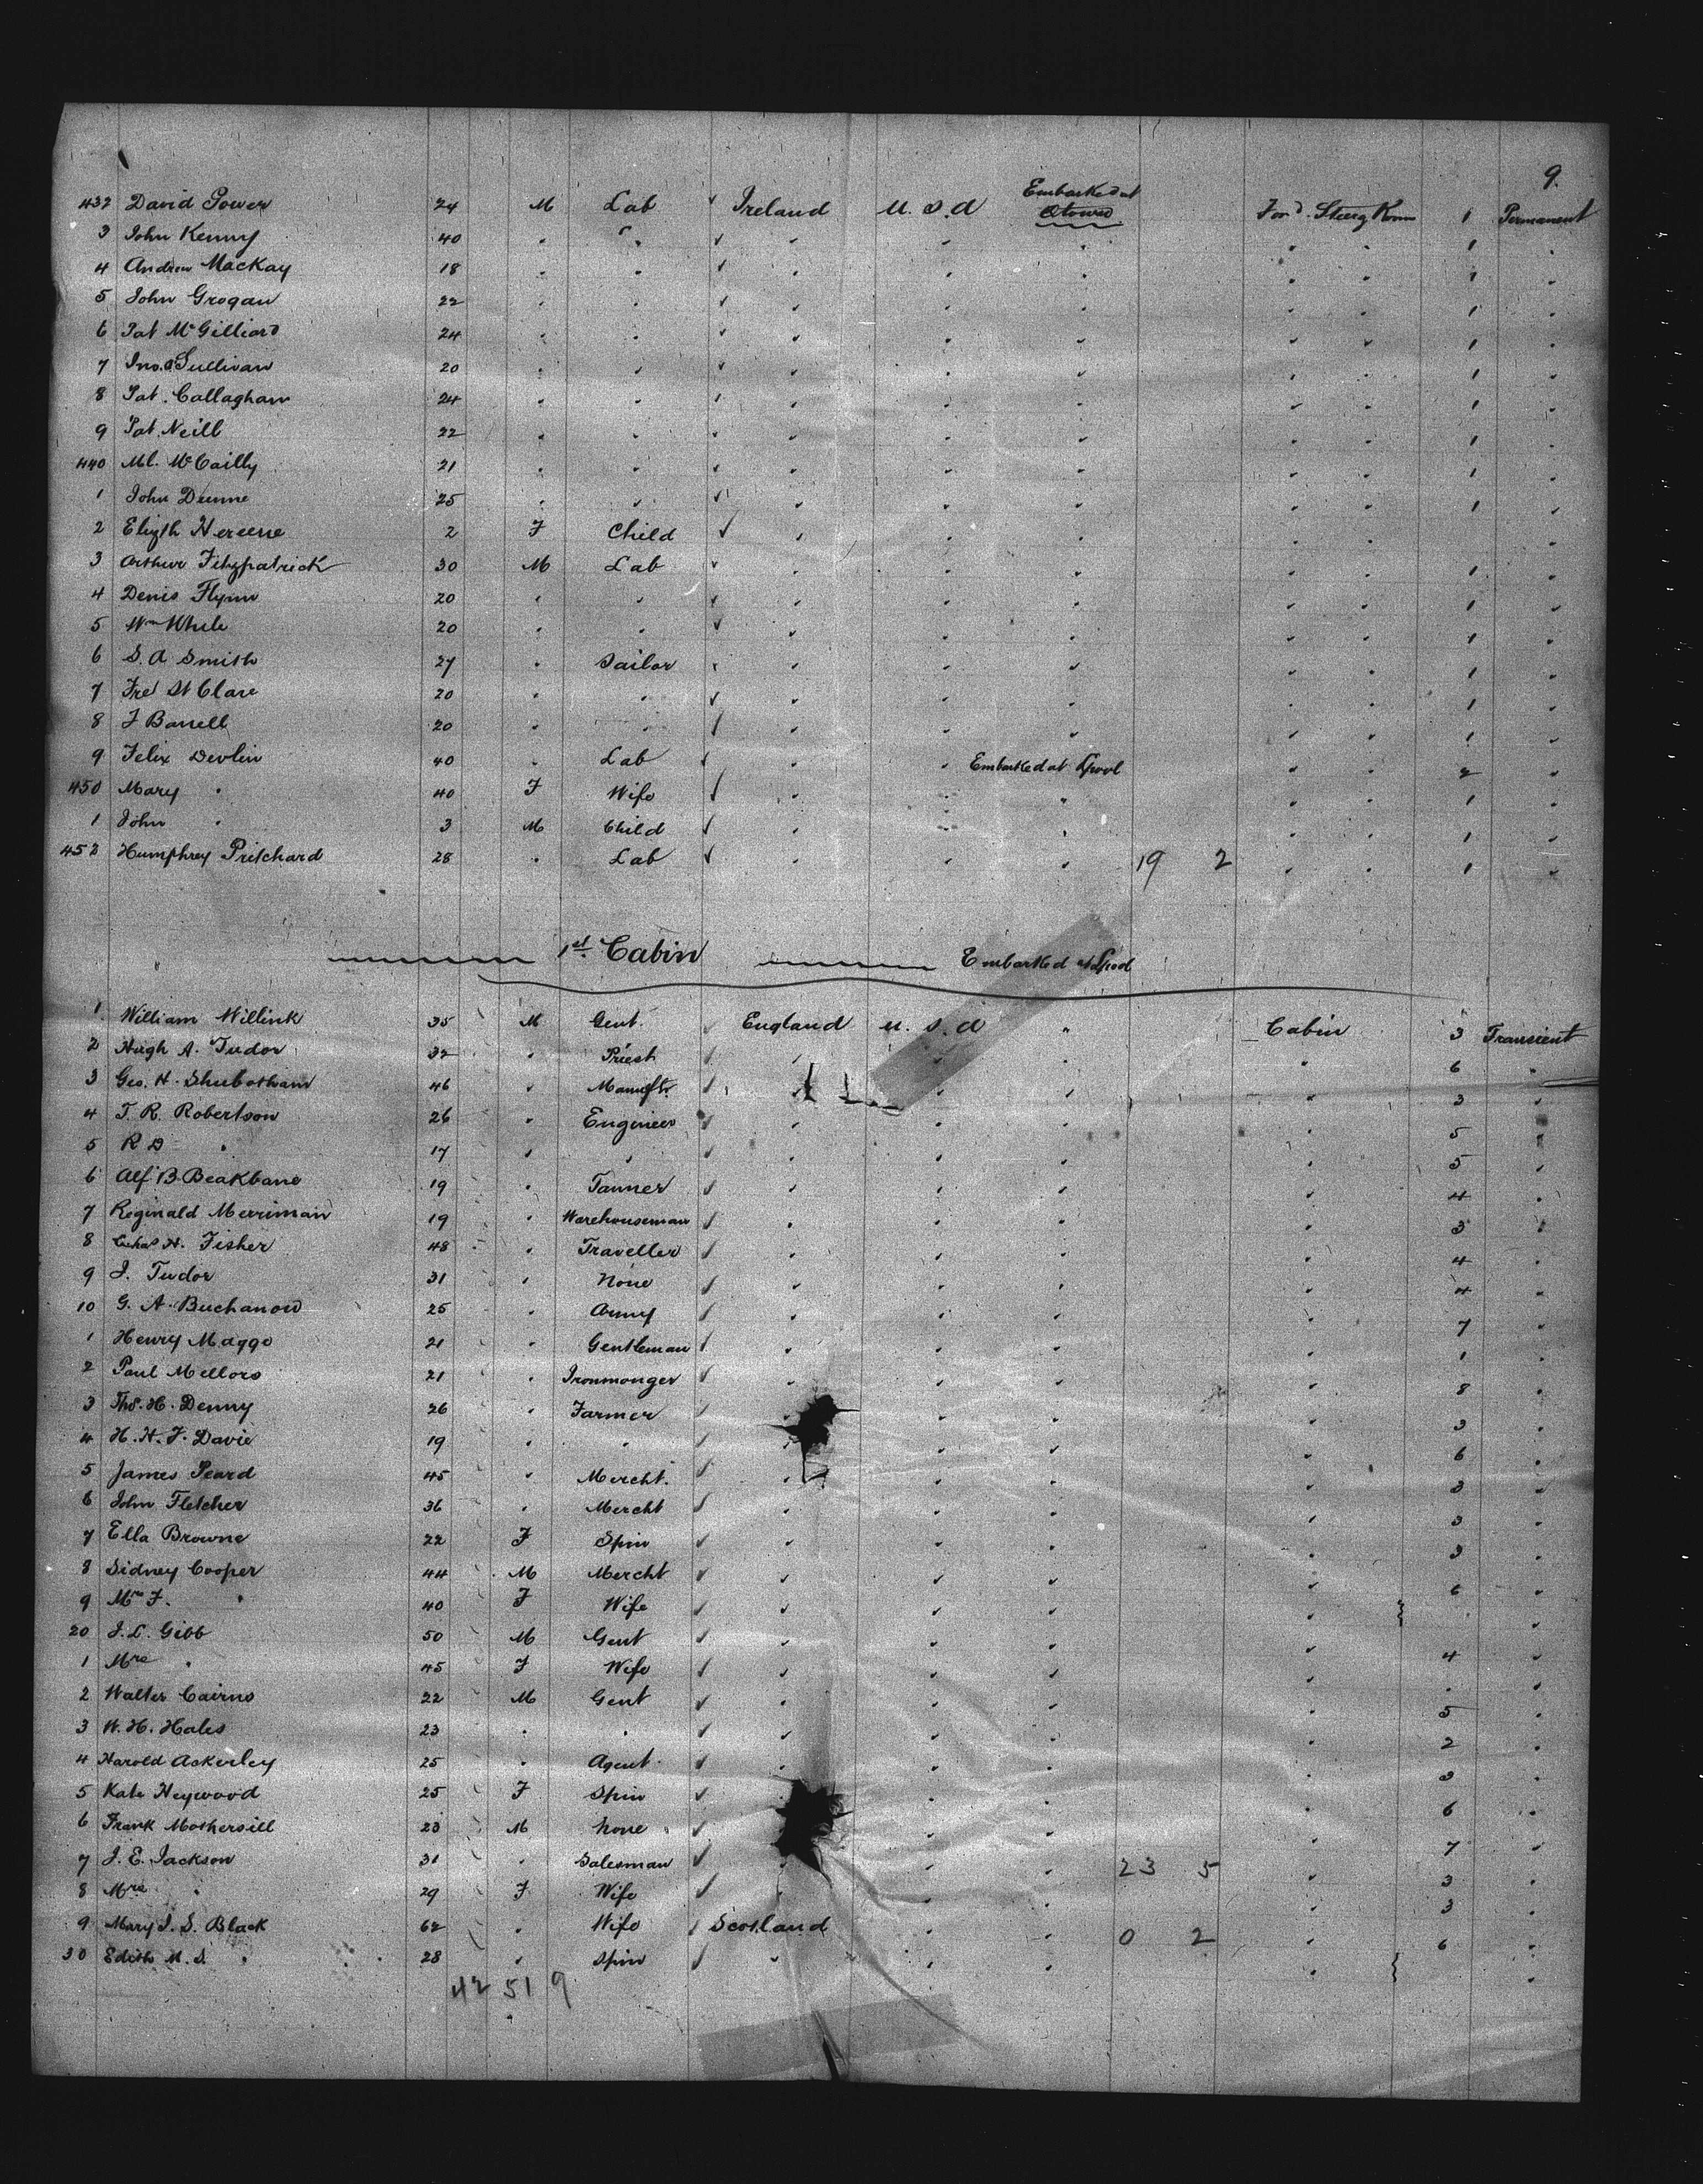 9.
Embarked at
432 David Power 24 M Lab ✓ Ireland U.S.A Qtown For'd Steerg Room 1 Permanent
3 John Kenny 40 " " ✓ " " " " " 1 "
4 Andrew MacKay 18 " " ✓ " " " " " 1 "
5 John Grogan 22 " " ✓ " " " " " 1 "
6 Pat McGilliard 24 " " ✓ " " " " " 1 "
7 Jno. O'Sullivan 20 " " ✓ " " " " " 1 "
8 Pat. Callaghan 24 " " ✓ " " " " " 1 "
9 Pat Neill 22 " " ✓ " " " " " 1 "
440 Ml. McCailly 21 " " ✓ " " " " " 1 "
1 John Dunne 25 " " ✓ " " " " " 1 "
2 Elizth 2 F Child ✓ " " " " " "
3 Arthur Fitzpatrick 30 M Lab ✓ " " " " " 1 "
4 Denis Flynn 20 " " ✓ " " " " " 1 "
5 Wm White 20 " " ✓ " " " " " 1 "
6 S. A. Smith 27 " Sailor ✓ " " " " " 1 "
7 Fred St Clare 20 " " ✓ " " " " " 1 "
8 J Barrell 20 " " ✓ " " " " " 1 "
9 Felix Devlin 40 " Lab ✓ " " Embarked at Lpool " " 2 "
450 Mary " 40 F Wife ✓ " " " " " 1 "
1 John " 3 M Child ✓ " " " " " 1 "
452 Humphrey Pritchard 28 " Lab ✓ " " " 19 2 " " 1 "
1st. Cabin Embarked at Lpool
1 William Willink 35 M Gent. ✓ England U.S.A " Cabin 3 Transient
2 Hugh A. Tudor 32 " Priest ✓ " " " " 6 "
3 Geo. H. Shubotham 46 " Manuftr. ✓ " " " " 3 "
4 T. R. Robertson 26 " Engineer ✓ " " " " 5 "
5 R D " 17 " " ✓ " " " " 5 "
6 Alf B Beakbane 19 " Tanner ✓ " " " " 4 "
7 Reginald Merriman 19 " Warehouseman ✓ " " " " 3 "
8 H. Fisher 48 " Traveller ✓ " " " " 4 "
9 J. Tudor 31 " None ✓ " " " " 4 "
10 G. A. Buchanow 25 " Army ✓ " " " " 7 "
1 Henry Maggs 21 " Gentleman ✓ " " " " 1 "
2 Paul Mellors 21 " Ironmonger ✓ " " " " 8 "
3 Thos. H. Denny 26 " Farmer ✓ " " " " 3 "
4 H. H. F. Davie 19 " " ✓ " " " " 6 "
5 James Peard 45 " Mercht. ✓ " " " " 3 "
6 John Fletcher 36 " Mercht ✓ " " " " 3 "
7 Ella Browne 22 F Spin ✓ " " " " 3 "
8 Sidney Cooper 44 M Mercht ✓ " " " " 6 "
9 Mrs F. " 40 F Wife ✓ " " " " } "
20 J. L. Gibb 50 M Gent ✓ " " " " 4 "
1 Mrs " 45 F Wife ✓ " " " " " "
2 Walter Cairns 22 M Gent ✓ " " " " 5 "
3 W. H. Hales 23 " " ✓ " " " " 2 "
4 Harold Ackerley 25 " Agent ✓ " " " " 3 "
5 Kate Heywood 25 F Spin ✓ " " " " 6 "
6 Frank Mothersill 23 M None ✓ " " " " 7 "
7 J. E. Jackson 31 " Salesman ✓ " " " 23 5 " 3 "
8 Mrs " 29 F Wife ✓ " " " " 3 "
9 Mary J. S. Black 62 " Wife ✓ Scotland " " 0 2 " 6 "
30 Edith M. S. " 28 " Spin ✓ " " " " } "
42 51 9